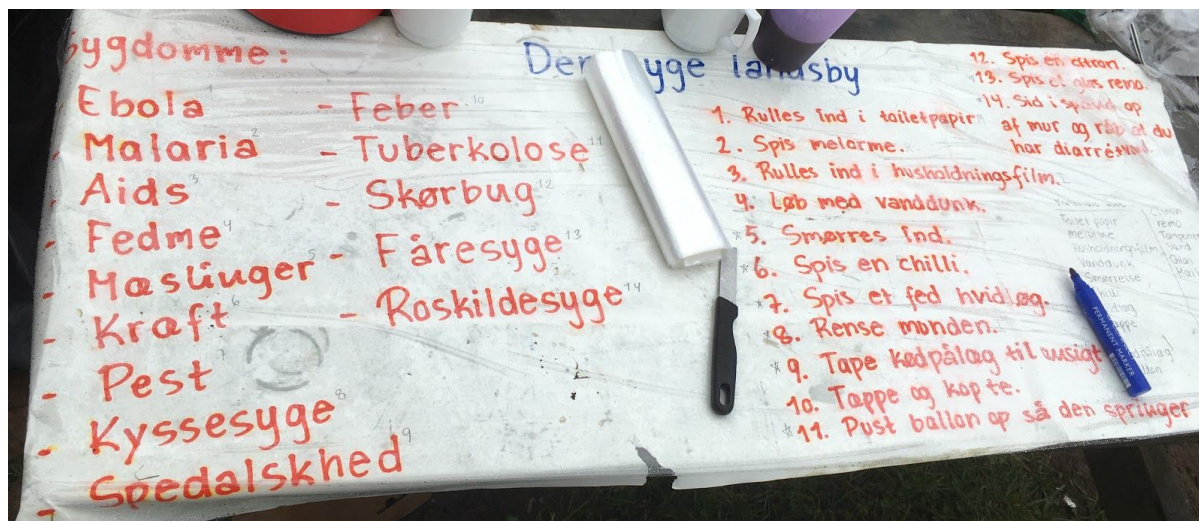 Den syge landsby
Sygdomme:
- Ebola 1
- Malaria 2
- Aids 3
- Fedme 4
- Mæslinger 5
- Kræft 6
- Pest 7
- Kyssesyge 8
- Spedalskhed 9
- Feber 10
- Tuberkolose 11
- Skørbug 12
- Fåresyge 13
- Roskildesyge 14
1. Rulles ind i toiletpapir
2. Spis melorme.
3. Rulles ind i husholdningsfilm.
4. Løb med vanddunk.
*5. Smørres ind.
*6. Spis en chilli.
*7. Spis et fed hvidløg.
8. Rense munden.
*9. Tape kødpålæg til ansigt
10. Tæppe og kop te.
*11. Pust ballon op så den springer
12. Spis en citron.
*13. Spis et glas remo.
*14. Sid i spand op
af mur og råb at du
har diarré
Toilet papir
melorme
Husholdningsfilm
Vanddunk
Smørrelse
Citron
remo
Vand
PERMANENT MARKER